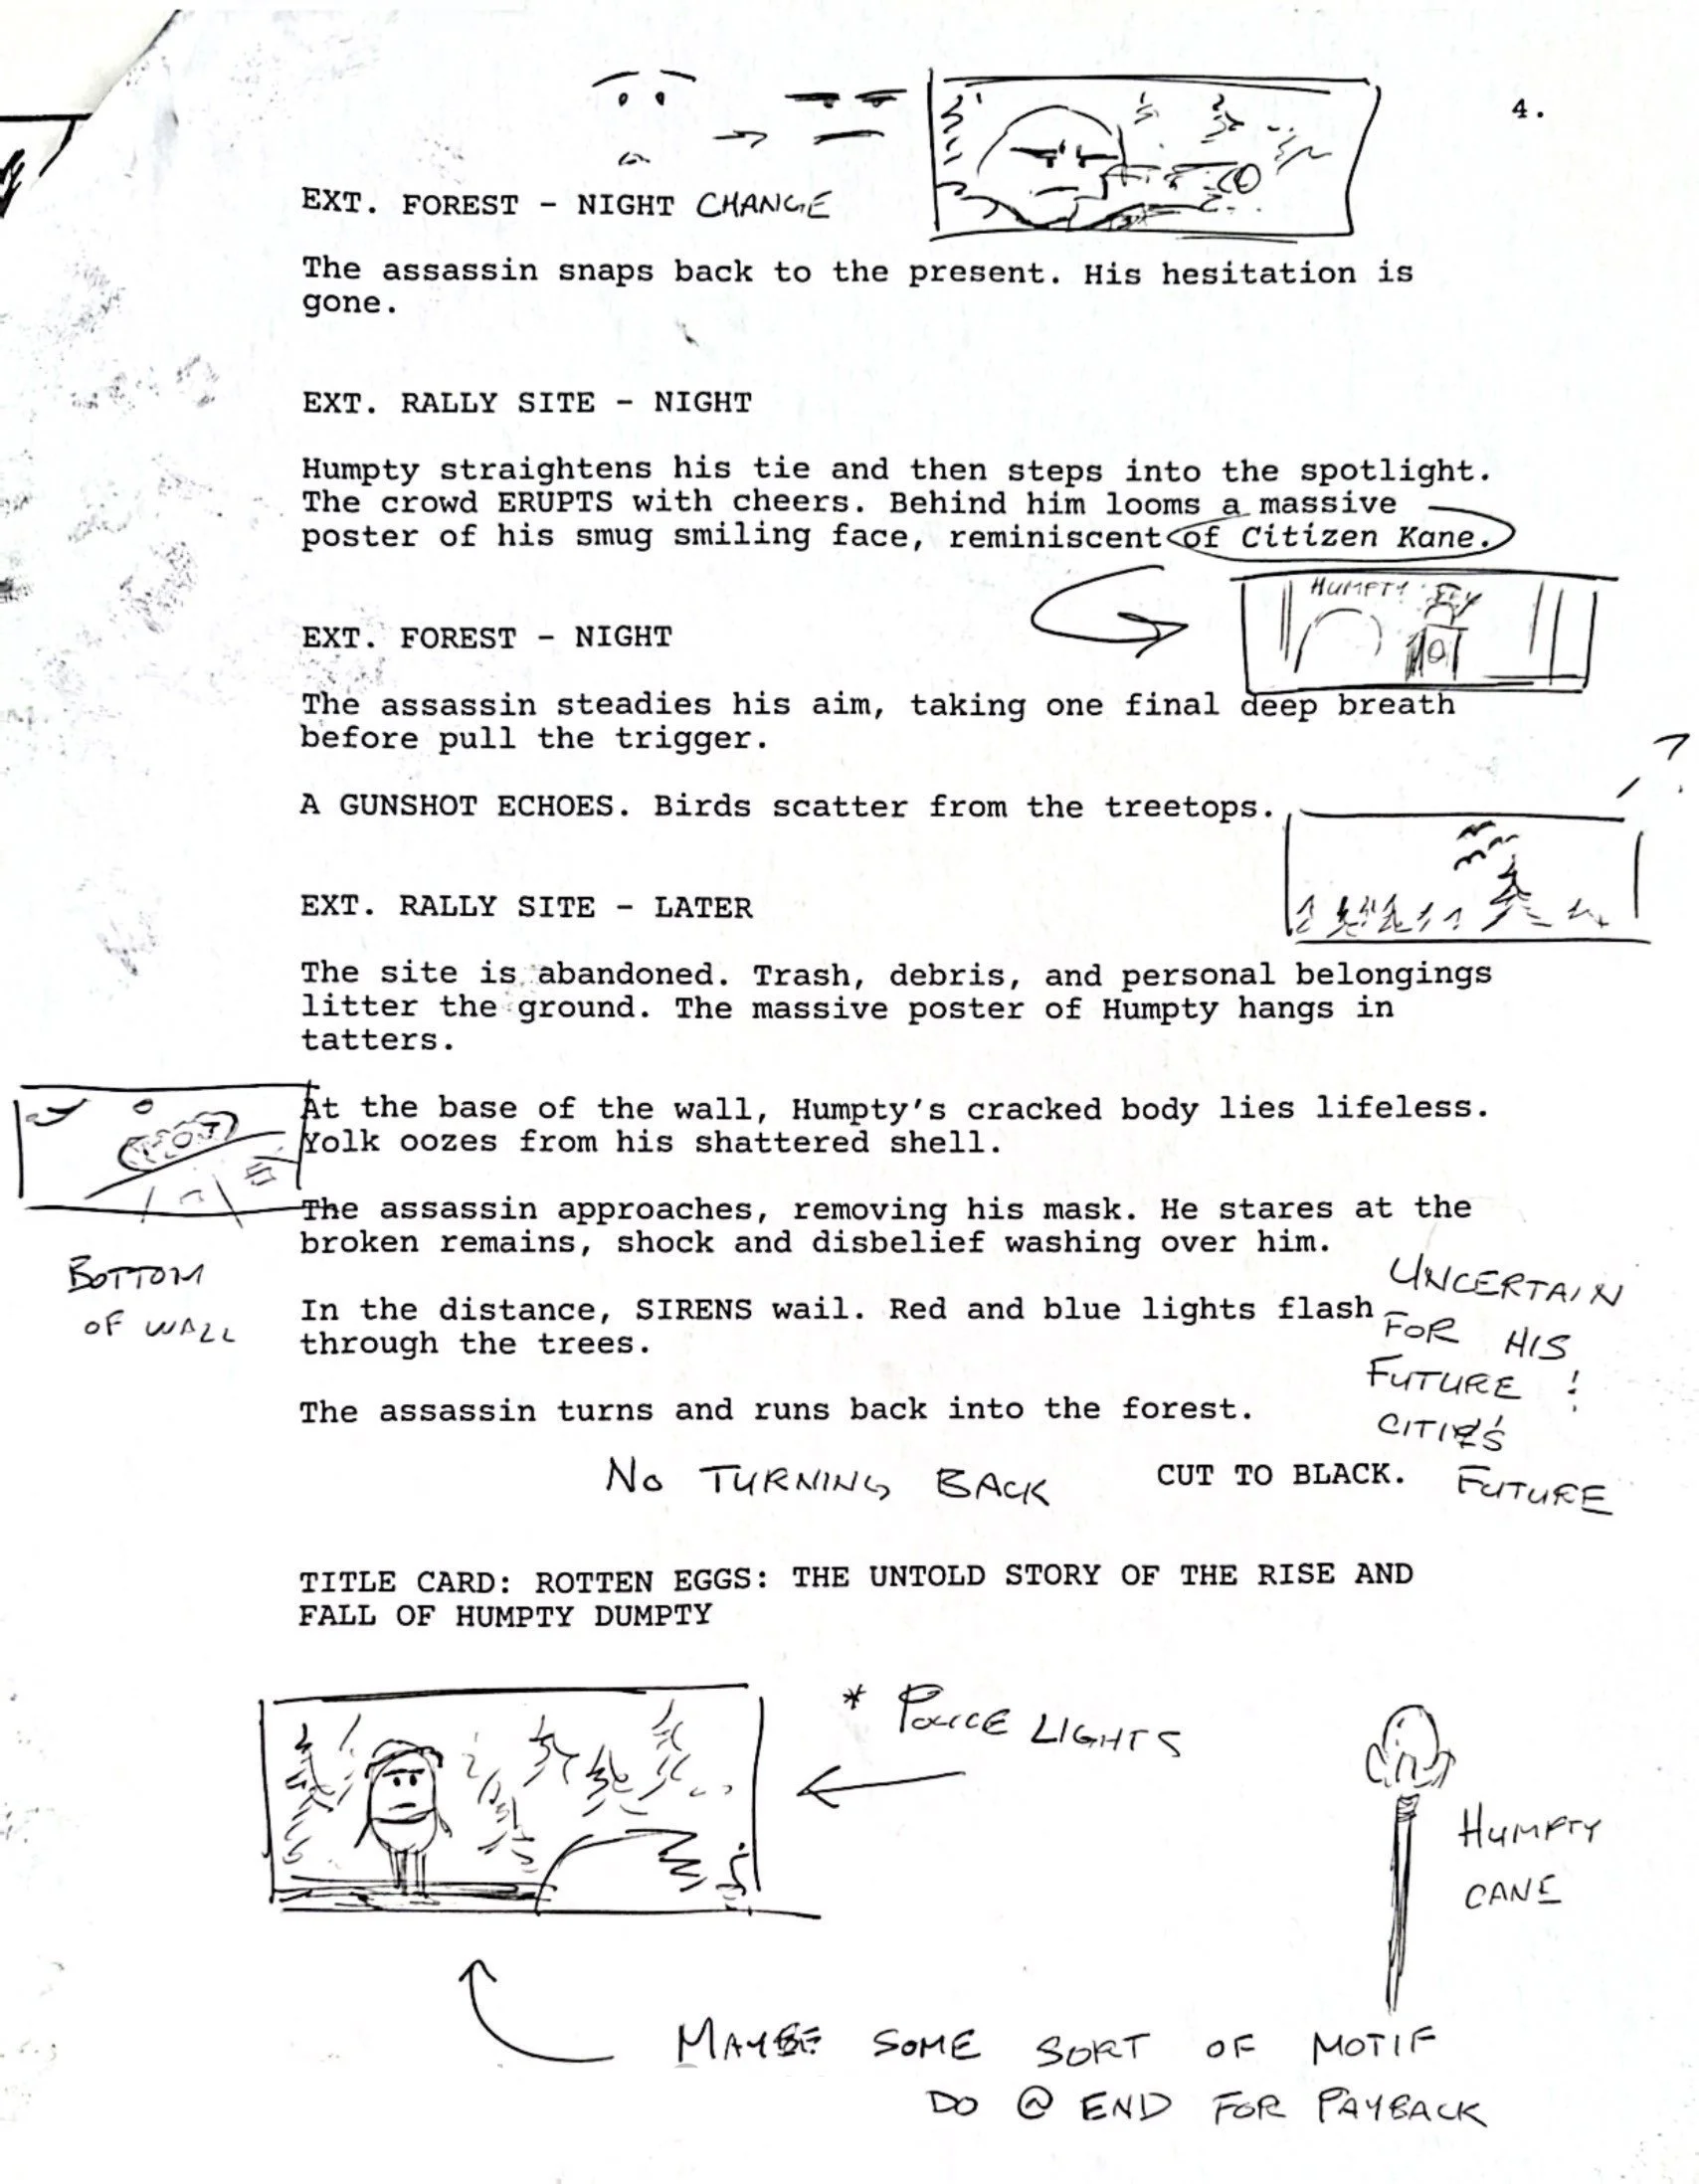 4.
EXT. FOREST - NIGHT CHANGE
The assassin snaps back to the present. His hesitation is
gone.
EXT. RALLY SITE - NIGHT
Humpty straightens his tie and then steps into the spotlight.
The crowd ERUPTS with cheers. Behind him looms a massive
poster of his smug smiling face, reminiscent of Citizen Kane.
HUMPTY
EXT. FOREST - NIGHT
The assassin steadies his aim, taking one final deep breath
before pull the trigger.
A GUNSHOT ECHOES. Birds scatter from the treetops.
EXT. RALLY SITE - LATER
The site is abandoned. Trash, debris, and personal belongings
litter the ground. The massive poster of Humpty hangs in
tatters.
At the base of the wall, Humpty's cracked body lies lifeless.
Yolk oozes from his shattered shell.
The assassin approaches, removing his mask. He stares at the
broken remains, shock and disbelief washing over him.
BOTTOM
OF WALL
In the distance, SIRENS wail. Red and blue lights flash
through the trees.
The assassin turns and runs back into the forest.
UNCERTAIN
FOR HIS
FUTURE !
CITIES
FUTURE
NO TURNING BACK
CUT TO BLACK.
TITLE CARD: ROTTEN EGGS: THE UNTOLD STORY OF THE RISE AND
FALL OF HUMPTY DUMPTY
* POLICE LIGHTS
HUMPTY
CANE
MAYBE SOME SORT OF MOTIF
DO @ END FOR PAYBACK